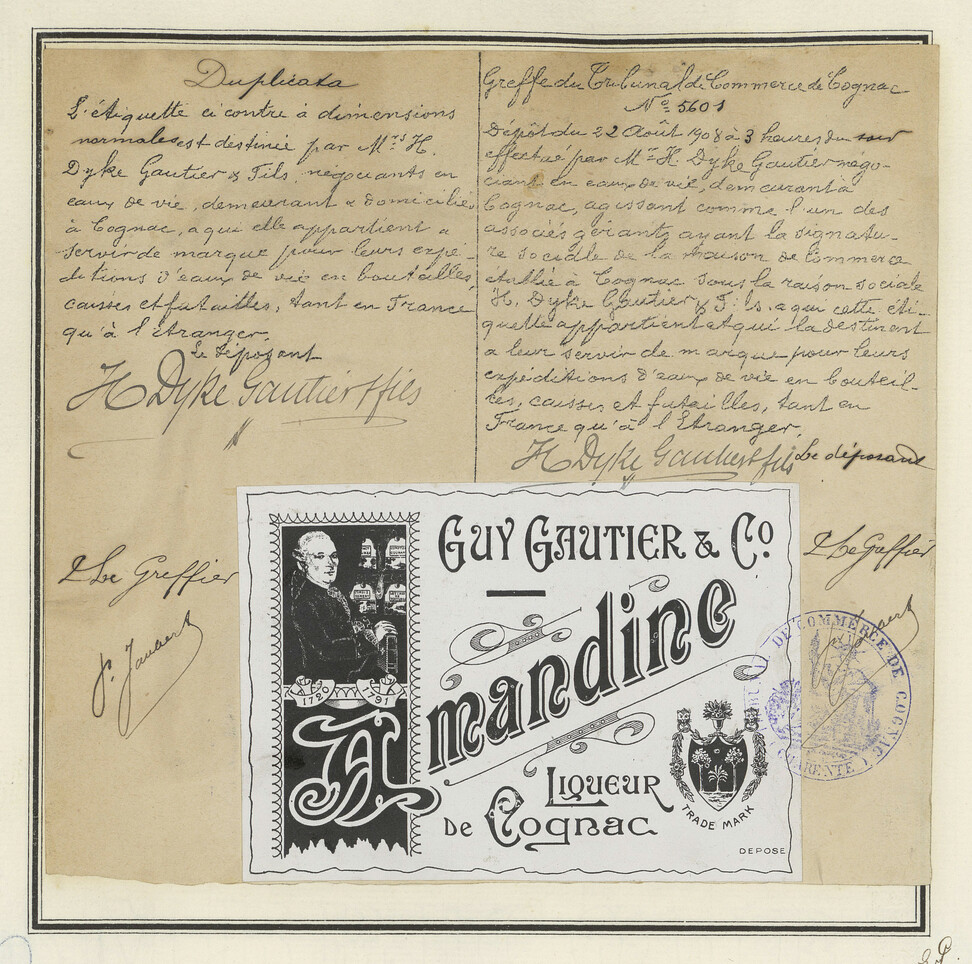 Duplicata
L'étiquette ci contre à dimensions
normales est destinée par Mrs H.
Dyke Gautier & Fils, négociants en
eaux de vie, demeurant & domiciliés
à Cognac, à qui elle appartient a
servir de marque pour leurs expé-
ditions d'eaux de vie en bouteilles,
caisses et futailles, tant en France
qu'à l'étranger.
Le Déposant
H Dyke Gautier & fils
Le Greffier
Greffe du Tribunal de Commerce de Cognac
No 5601
Dépôt du 22 Août 1908 à 3 heures du soir
effectué par Mr H. Dyke Gautier négo-
ciant en eaux de vie, demeurant à
Cognac, agissant comme l'un des
associés gérants ayant la signatu-
re sociale de la maison de Commerce
établie à Cognac sous la raison sociale
H. Dyke Gautier & Fils, a qui cette éti-
quette appartient et qui la destinent
a leur servir de marque pour leurs
expéditions d'eaux de vie en bouteil-
les, caisses et futailles, tant en
France qu'à l'Etranger.
H Dyke Gautier & fils Le déposant
Le Greffier
GUY GAUTIER & Co.
Amandine
LIQUEUR
DE COGNAC
1720 1791
TRADE MARK
DEPOSE
DE COMMERCE DE COGNAC
(CHARENTE)